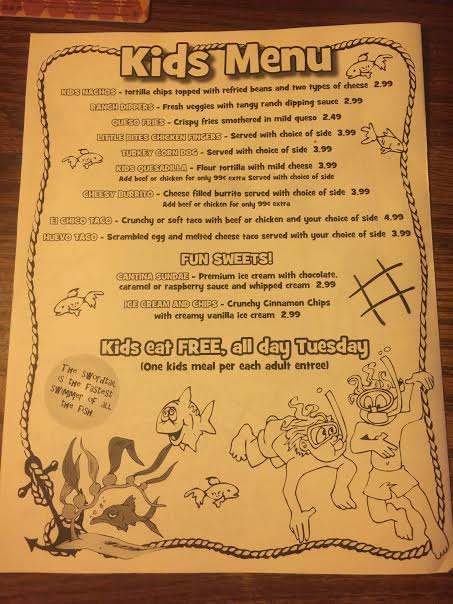 Kids Menu
KIDS NACHOS - tortilla chips topped with refried beans and two types of cheese 2.99
RANCH DIPPERS - Fresh veggies with tangy ranch dipping sauce 2.99
QUESO FRIES - Crispy fries smothered in mild queso 2.49
LITTLE BITES CHICKEN FINGERS - Served with choice of side 3.99
TURKEY CORN DOG - Served with choice of side 3.99
KIDS QUESADILLA - Flour tortilla with mild cheese 3.99
Add beef or chicken for only 99¢ extra Served with choice of side
CHEESY BURRITO - Cheese filled burrito served with choice of side 3.99
Add beef or chicken for only 99¢ extra
El CHICO TACO - Crunchy or soft taco with beef or chicken and your choice of side 4.99
HUEVO TACO - Scrambled egg and melted cheese taco served with your choice of side 3.99
FUN SWEETS!
CANTINA SUNDAE - Premium ice cream with chocolate,
caramel or raspberry sauce and whipped cream 2.99
ICE CREAM AND CHIPS - Crunchy Cinnamon Chips
with creamy vanilla ice cream 2.99
Kids eat FREE, all day Tuesday
(One kids meal per each adult entree)
The Swordtail
is the fastest
swimmer of all
the fish